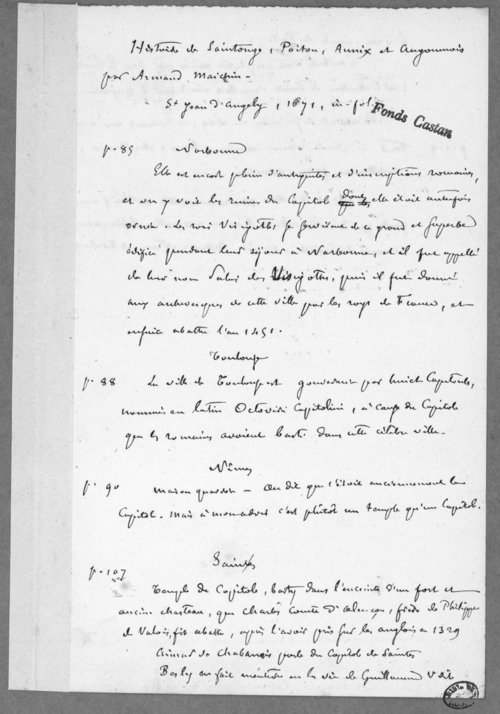 Histoire de Saintonge, Poitou, Aunix et Angoumois
par Armand Maichin -
St Jean d'Angely, 1671, in-fol.
Fonds Castan
p. 85 Narbonne
Elle est encore pleine d'antiquités et d'inscriptions romaines,
et on y voit les ruines du Capitole dont elle était autrefois
ornée. Les rois Visigoths se servirent de ce grand et superbe
édifice pendant leur séjour à Narbonne, et il fut appellé
de leur nom Palais des Visigoths, puis il fut donné
aux archevesques de cette ville par les roys de France, et
enfin abattu l'an 1451.
Toulouse
p. 88 La ville de Toulouse est gouvernée par huict Capitouls,
nommés en latin Octoviri Capitolini, à cause du Capitole
que les romains avoient basti dans cette célèbre ville.
Nîmes
p. 90 Maison quarrée - On dit que c'étoit anciennement le
Capitole. Mais à mon advis c'est plûtôt un temple qu'un Capitole.
Saintes
p. 107
Temple du Capitole, basty dans l'enceinte d'un fort et
ancien chasteau, que Charles Comte d'Alençon, frère de Philippe
de Valois, fit abattre, après l'avoir pris sur les anglois en 1329
Aimar de Chabanois parle du Capitole de Saintes
Besly en fait mention en la vie de Guillaume V dit